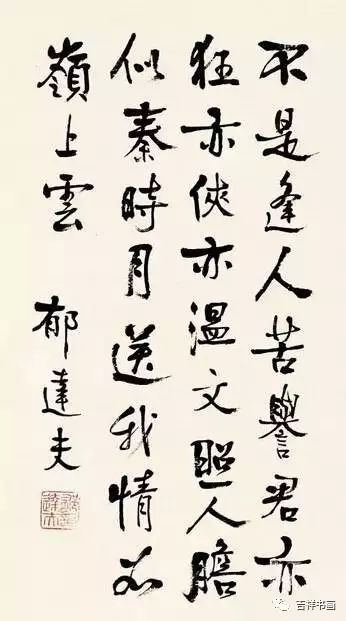 不是逢人苦譽君亦
狂亦俠亦温文照人膽
似秦時月送我情如
嶺上雲 郁達夫
吉祥书画